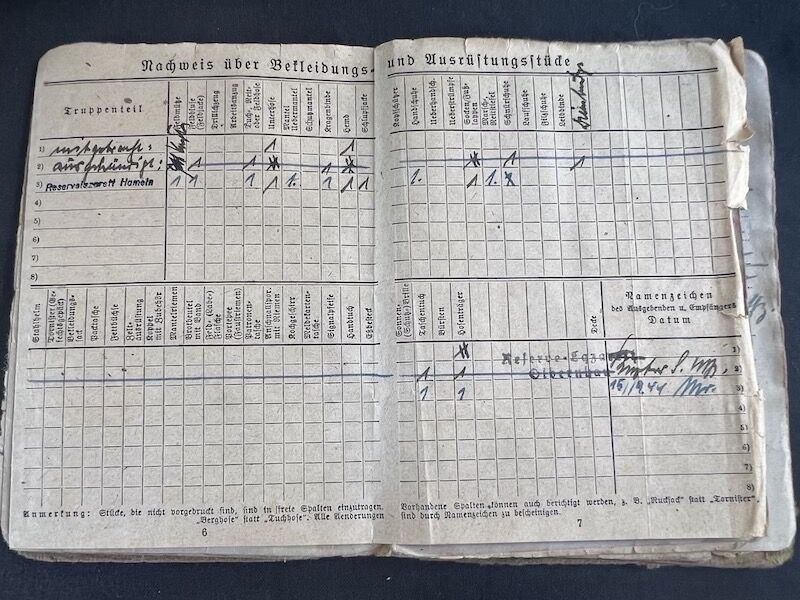 Nachweis über Bekleidungs- und Ausrüstungsstücke
Truppenteil
Feldmütze
Feldbluse (Feldjacke)
Drillichzeug
Arbeitsanzug
Tuch-, Reit- oder Feldhose
Unterhose
Mantel Uebermantel
Schutzmantel
Kragenbinde
Hemd
Schlupfjacke
Kopfschützer
Handschuhe
Ueberhandsch.
Ueberstrümpfe
Socken/Fußlappen
Marsch-, Reitstiefel
Schnürschuhe
Laufschuhe
Filzschuhe
Leibbinde
1) mitgebracht: 1 1
2) ausgehändigt: 1 1 1 1 1
3) Reservelazarett Hameln 1 1 1 1 1. 1 1 1 1. 1 1.
4)
5)
6)
7)
8)
Stahlhelm
Tornister (Gefechtsgepäck)
Bekleidungssack
Packtasche
Zeltbüchse
Zeltausrüstung
Koppel mit Zubehör
Mantelriemen
Brotbeutel mit Band
Feld- (Labe-) flasche
Traggerüst
Patronentasche
Kochgeschirr
Meldekartentasche
Signalpfeife
Handtuch
Eßbesteck
Sonnen- (Schutz) Brille
Taschentuch
Bürsten
Hosenträger
Decke
Namenzeichen
des Ausgebenden u. Empfängers
Datum
1)
Reserve-Laza
Olbernhau
1 1 2)
1 1 15/19.44 3)
4)
5)
6)
7)
8)
Anmerkung: Stücke, die nicht vorgedruckt sind, sind in freie Spalten einzutragen. Vorhandene Spalten können auch berichtigt werden, z. B. „Rucksack" statt „Tornister",
„Berghose" statt „Tuchhose". Alle Aenderungen sind durch Namenzeichen zu bescheinigen.
6
7